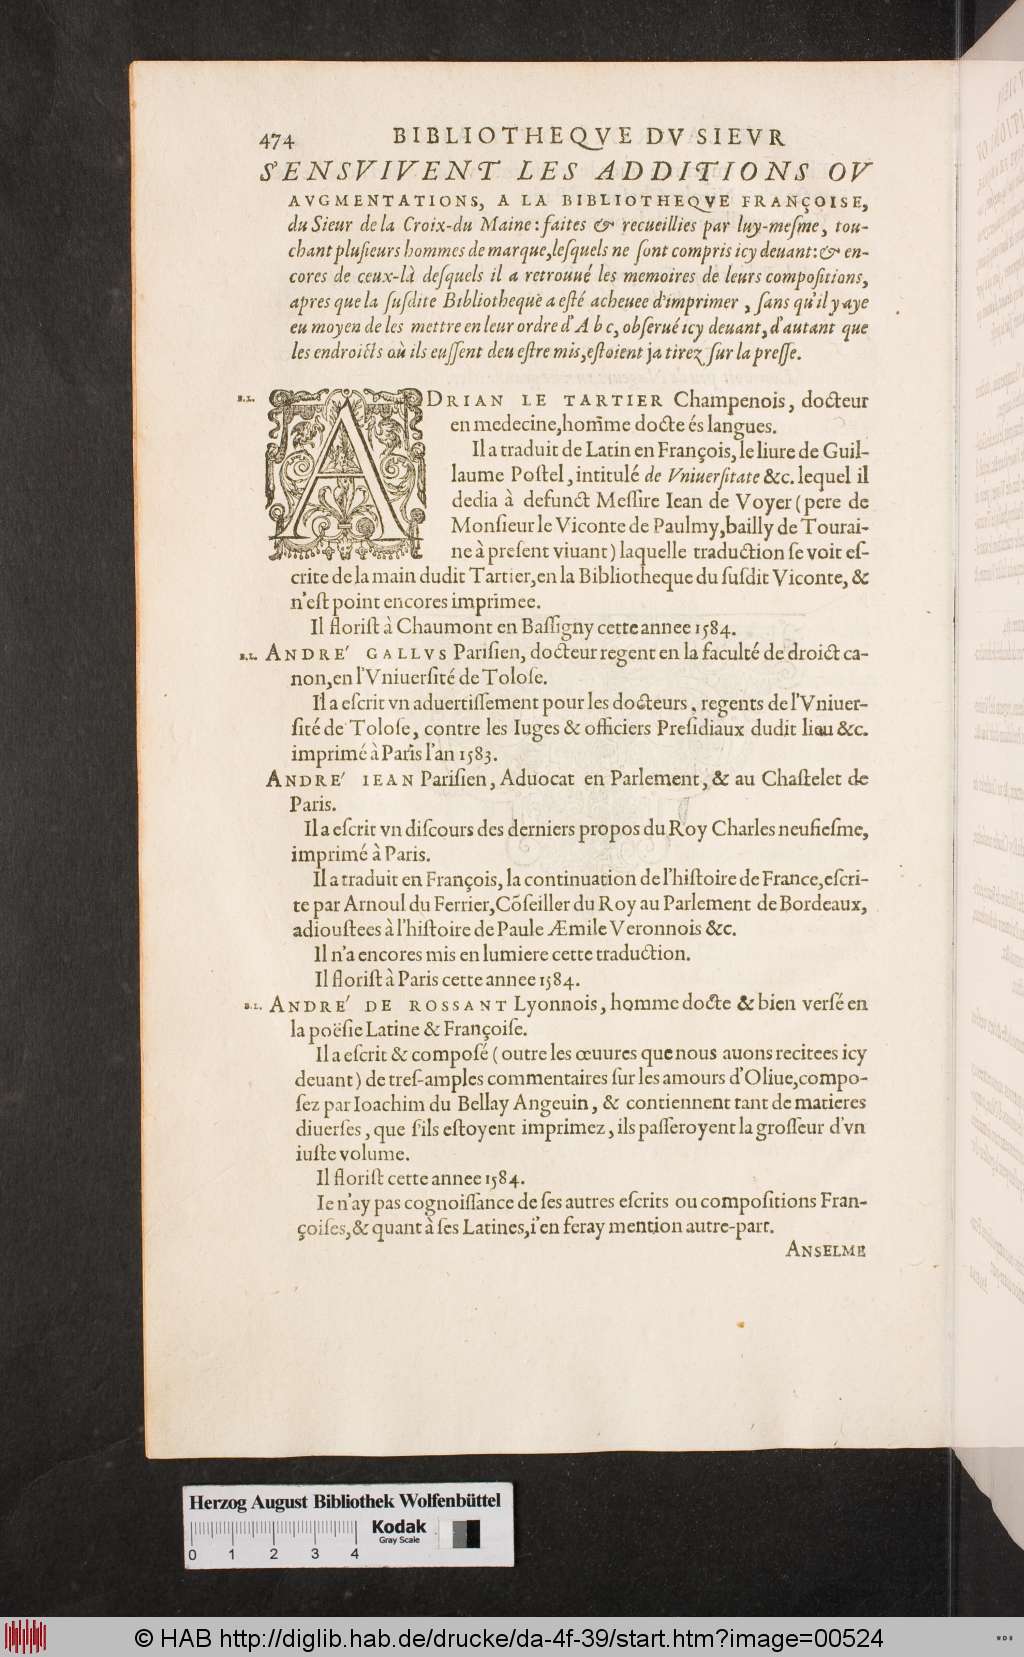 474 BIBLIOTHEQVE DV SIEVR
S'ENSVIVENT LES ADDITIONS OV
AVGMENTATIONS, A LA BIBLIOTHEQVE FRANÇOISE,
du Sieur de la Croix-du Maine: faites & recueillies par luy-mesme, tou-
chant plusieurs hommes de marque, lesquels ne sont compris icy deuant: & en-
cores de ceux-là desquels il a retrouué les memoires de leurs compositions,
apres que la susdite Bibliotheque a esté acheuee d'imprimer, sans qu'il y aye
eu moyen de les mettre en leur ordre d'A b c, obserué icy deuant, d'autant que
les endroicts où ils eussent deu estre mis, estoient ja tirez sur la presse.
B.L. ADRIAN LE TARTIER Champenois, docteur
en medecine, hom̃me docte és langues.
Il a traduit de Latin en François, le liure de Guil-
laume Postel, intitulé de Vniuersitate &c. lequel il
dedia à defunct Messire Iean de Voyer (pere de
Monsieur le Viconte de Paulmy, bailly de Tourai-
ne à present viuant) laquelle traduction se voit es-
crite de la main dudit Tartier, en la Bibliotheque du susdit Viconte, &
n'est point encores imprimee.
Il florist à Chaumont en Bassigny cette annee 1584.
B.L. ANDRE' GALLVS Parisien, docteur regent en la faculté de droict ca-
non, en l'Vniuersité de Tolose.
Il a escrit vn aduertissement pour les docteurs, regents de l'Vniuer-
sité de Tolose, contre les Iuges & officiers Presidiaux dudit lieu &c.
imprimé à Paris l'an 1583.
ANDRE' IEAN Parisien, Aduocat en Parlement, & au Chastelet de
Paris.
Il a escrit vn discours des derniers propos du Roy Charles neufiesme,
imprimé à Paris.
Il a traduit en François, la continuation de l'histoire de France, escri-
te par Arnoul du Ferrier, Cõseiller du Roy au Parlement de Bordeaux,
adioustees à l'histoire de Paule Æmile Veronnois &c.
Il n'a encores mis en lumiere cette traduction.
Il florist à Paris cette annee 1584.
B.L. ANDRE' DE ROSSANT Lyonnois, homme docte & bien versé en
la poësie Latine & Françoise.
Il a escrit & composé (outre les œuures que nous auons recitees icy
deuant) de tres-amples commentaires sur les amours d'Oliue, compo-
sez par Ioachim du Bellay Angeuin, & contiennent tant de matieres
diuerses, que s'ils estoyent imprimez, ils passeroyent la grosseur d'vn
iuste volume.
Il florist cette annee 1584.
Ie n'ay pas cognoissance de ses autres escrits ou compositions Fran-
çoises, & quant à ses Latines, i'en feray mention autre-part.
ANSELME
Herzog August Bibliothek Wolfenbüttel
Kodak
Gray Scale
0 1 2 3 4
© HAB http://diglib.hab.de/drucke/da-4f-39/start.htm?image=00524